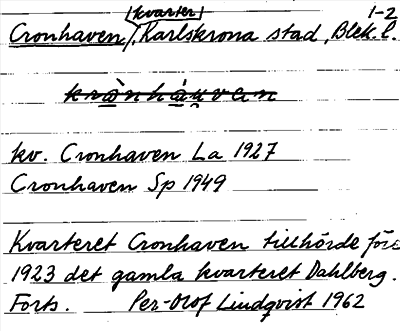 kvarter 1-2
Cronhaven, Karlskrona stad, Blek. l.
krànhàuvan
kv. Cronhaven La 1927
Cronhaven Sp 1949
Kvarteret Cronhaven tillhörde före
1923 det gamla kvarteret Dahlberg.
Forts. Per-Olof Lindqvist 1962